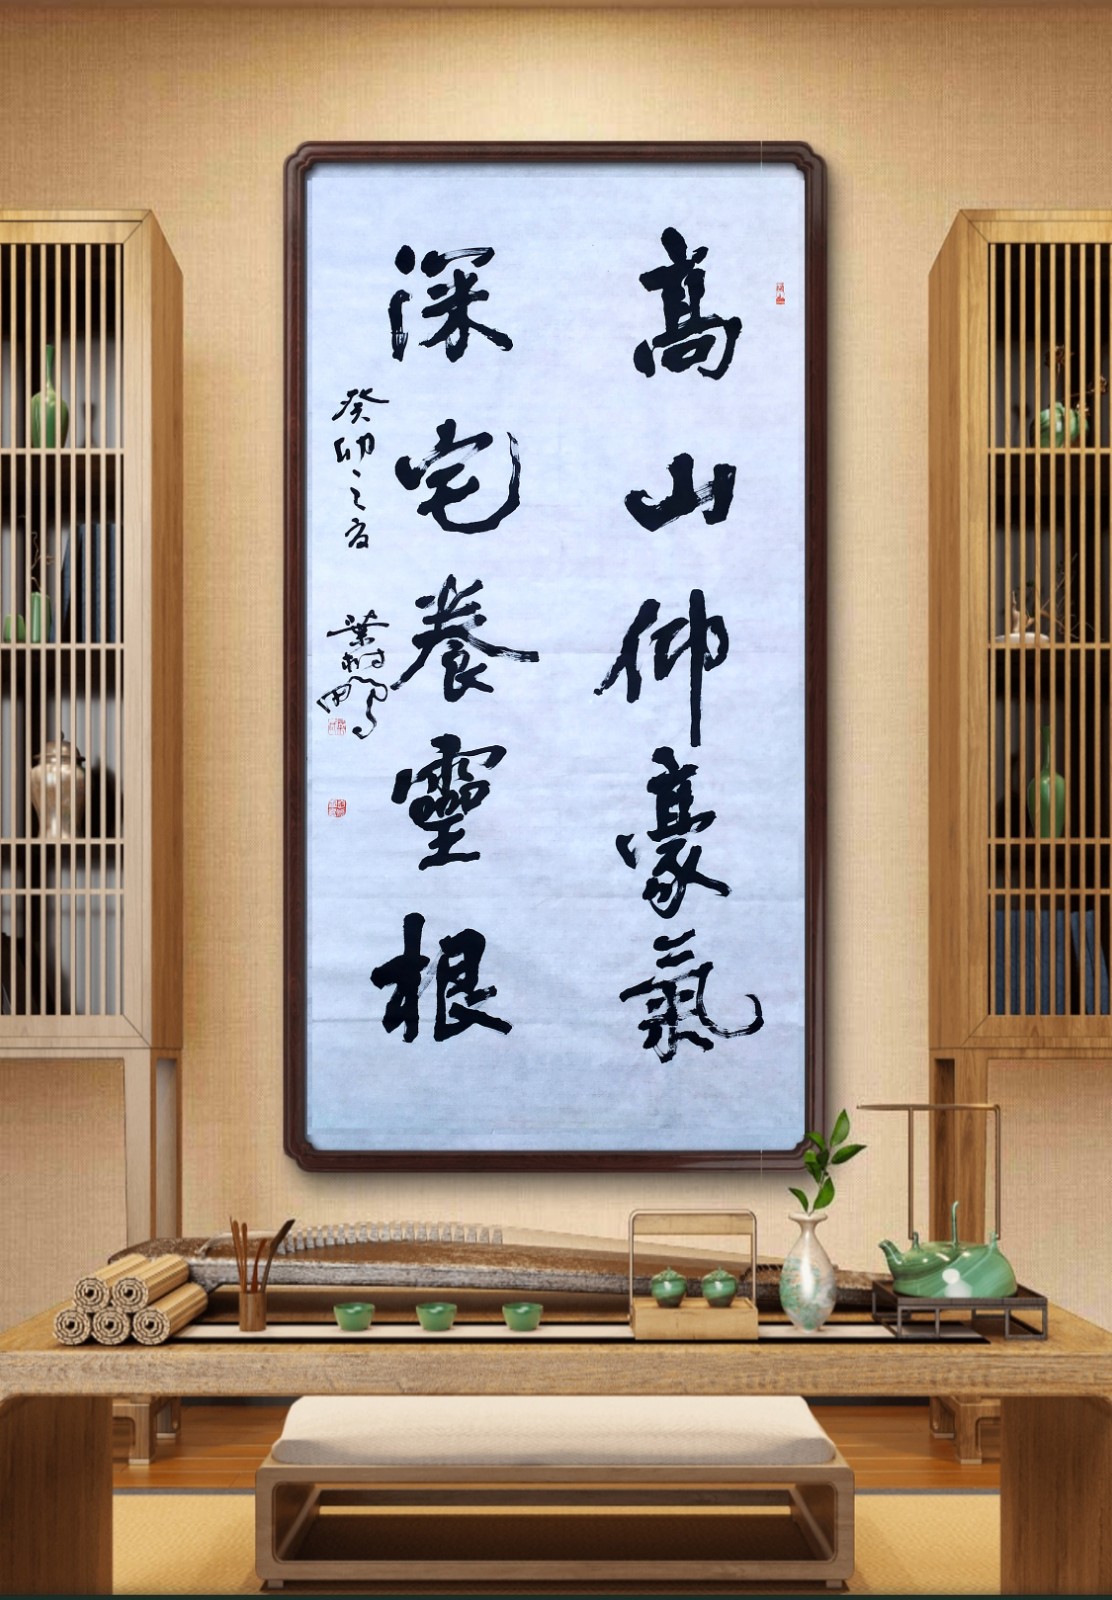 高山仰豪氣
深宅養靈根
癸卯之夏
葉樹鵬